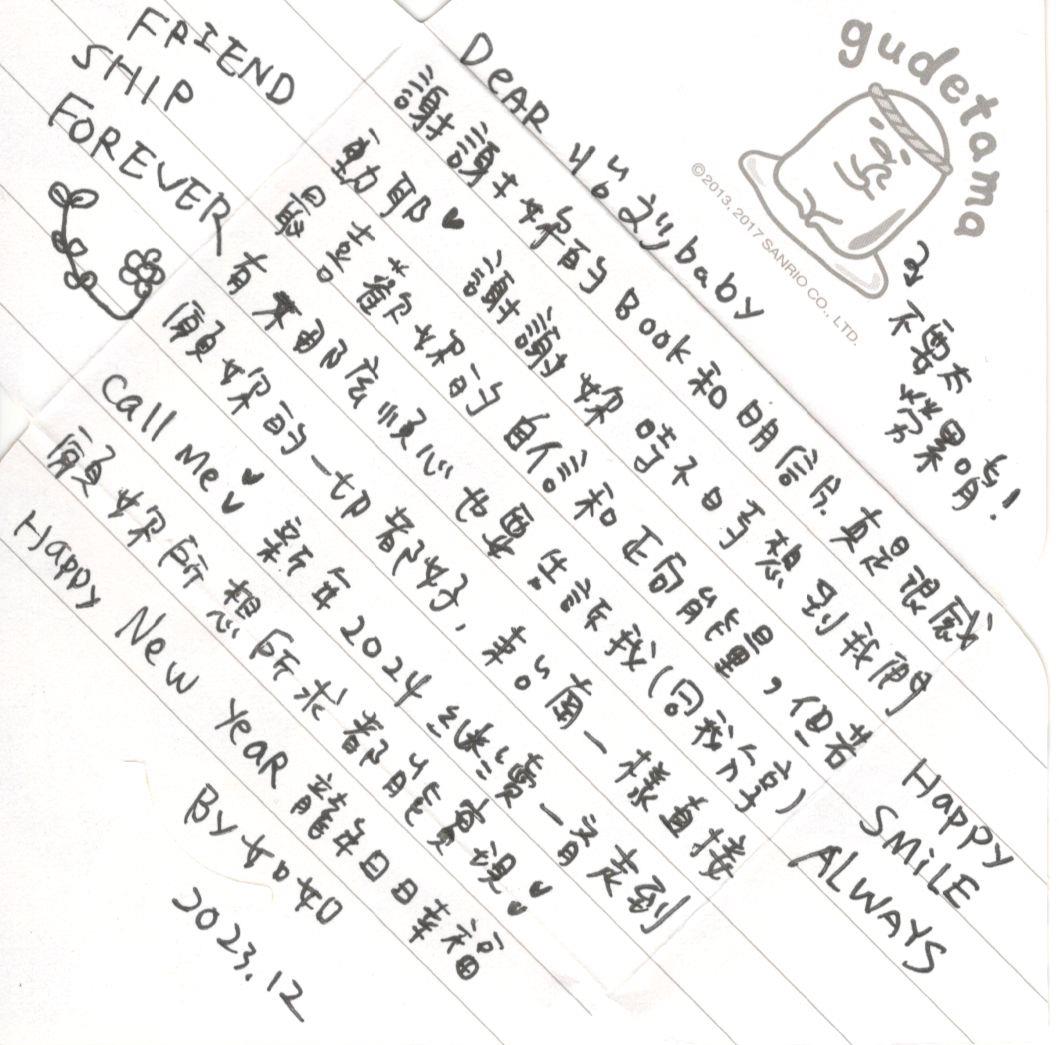 gudetama
©2013, 2017 SANRIO CO., LTD.
不要太
勞累唷!
FRIEND
SHIP
FOREVER
DeAR baby
謝謝妳的Book和明信片真是很感
動耶♥ 謝謝妳時不時想到我們
最喜歡妳的自信和正向能量,但若
有不那么順心也要告訴我(同我分享)
願妳的一切都好,來台南一樣直接
Call Me♥♥ 新年2024 繼續一走到
願妳所想所求都能實現♥♥
Happy New Year 龍年日日幸福
By 如如
2023.12
Happy
SMiLE
ALWAYS